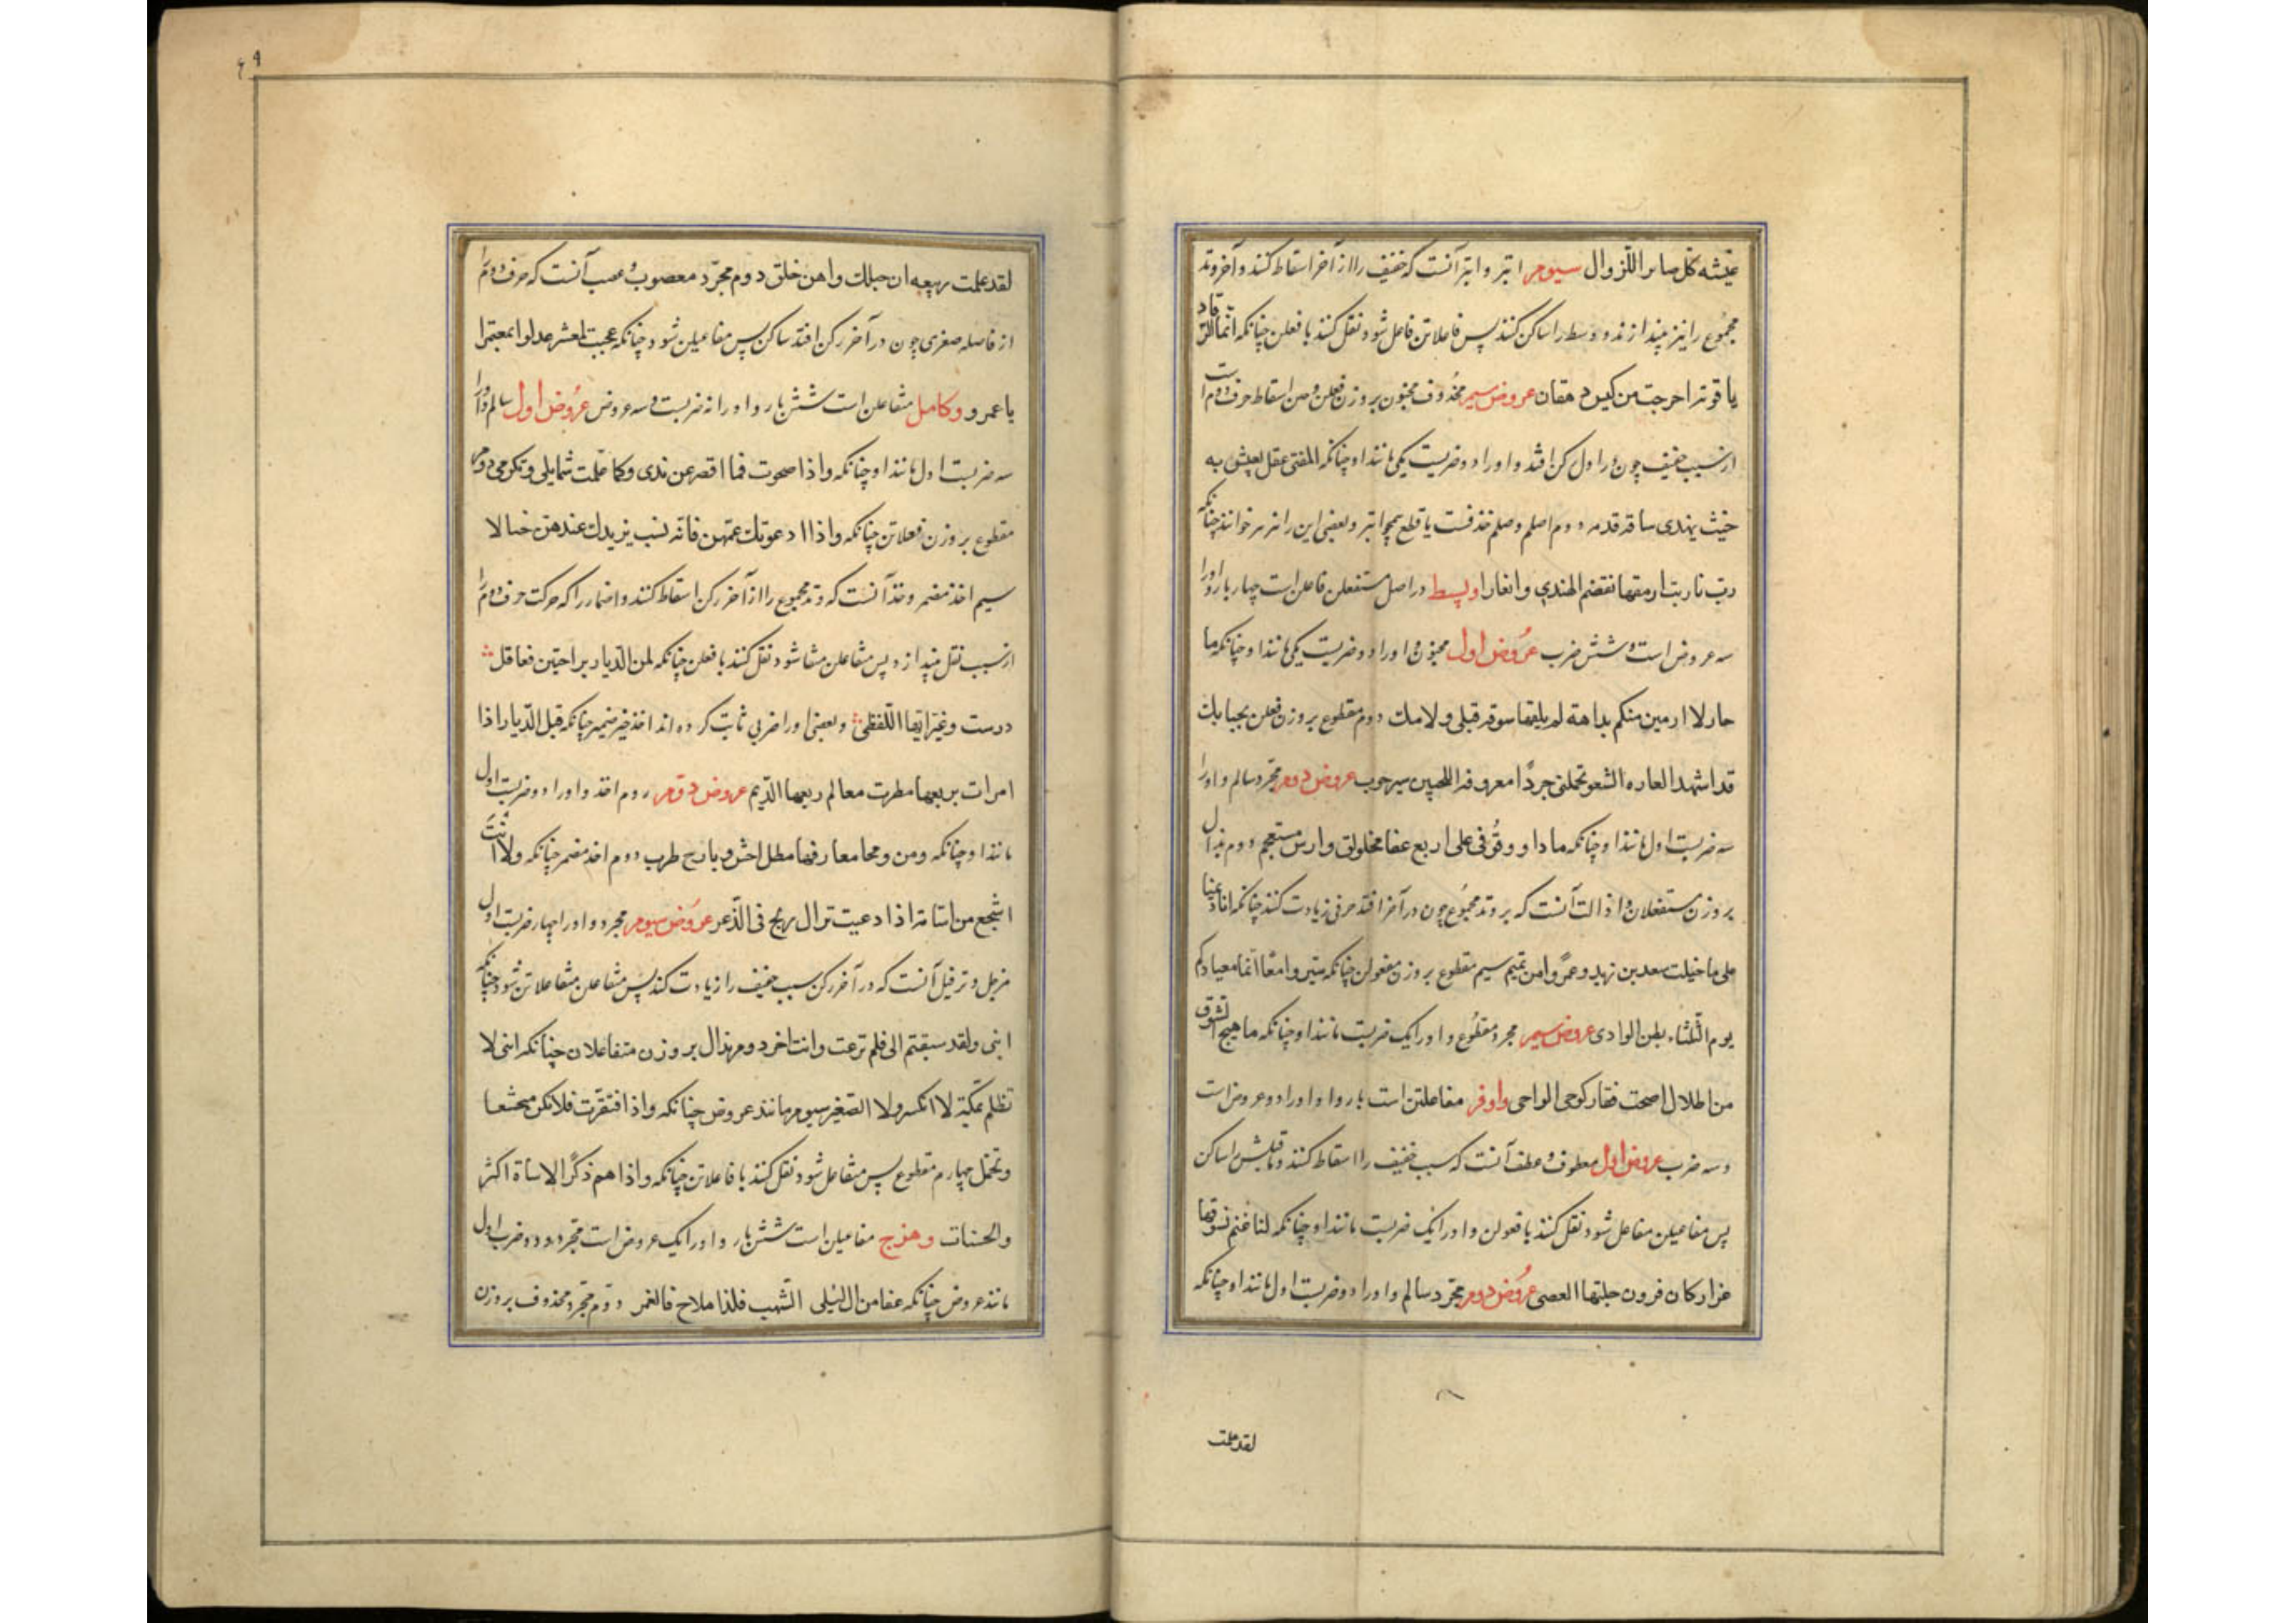 عیشه کل صایر اللزوال سیوم ابتر و ابتر آنست که خفیف را از آخر اسقاط کنند و آخر وتد
مجموع را نیز بیندازند و وسط را ساکن کنند پس فاعلاتن فاعل شود نقل کنند با فعلن چنانکه انما الذلفاء
یاقوتة اخرجت من کیس دهقان عروض سیم محذوف مخبون بر وزن فعلن و خبن اسقاط حرف دوم است
از سبب خفیف چون در اول رکن افتد و او را دو ضربست یکی مانند او چنانکه للفتی عقل یعیش به
حیث یهدی ساقه قدمه دوم اصلم و صلم حذفست یا قطع همچو ابتر و بعضی این را نیز خوانند چنانکه
رب نار بت ارمقها تقضم الهندی و الغارا و بسط در اصل مستفعلن فاعلن است چهار بار و او را
سه عروض است و شش ضرب عروض اول مخبون و او را دو ضربست یکی مانند او چنانکه یا
حار لا ارمین منکم بداهة لم یلقها سوقة قبلی و لا ملك دوم مقطوع بر وزن فعلن
قد اشهد الغاره الشعو تحملنی جردا معروقة اللحیین سرحوب عروض دوم مجزو سالم و او را
سه ضربست اول مانند او چنانکه ماذا وقوفی علی ربع عفا مخلولق دارس مستعجم دوم مذال
بر وزن مستفعلان و اذالت آنست که بر وتد مجموع چون در آخر افتد حرفی زیادت کنند چنانکه انا ذممنا
علی ما خیلت سعد بن زید و عمرو من تمیم سیم مقطوع بر وزن مفعولن چنانکه سیروا معا انما میعادکم
یوم الثلثاء بطن الوادی عروض سیم مجزو مقطوع و او را یک ضربست مانند او چنانکه ما هیج الشوق
من اطلال اضحت قفار کوحی الواحی وافر مفاعلتن است بار و او را دو عروض است
و سه ضرب عروض اول معطوف و عطف آنست که سبب خفیف را اسقاط کنند و ماقبلش را ساکن
پس مفاعیلن مفاعل شود نقل کنند با فعولن و او را یک ضربست مانند او چنانکه لنا غنم نسوقها
غزار کان قرون جلتها العصی عروض دوم مجزو سالم و او را دو ضربست اول مانند او چنانکه
لقد علمت
۶۹
لقد علمت ربیعه ان حبلك واهن خلق دوم مجزو معصوب و عصب آنست که حرف دوم را
از فاصله صغری چون در آخر رکن افتد ساکن پس مفاعیلن شود چنانکه عجبت لمعشر عدلوا بمعتمرا
یا عمرو و کامل متفاعلن است شش بار و او را نه ضربست و سه عروض عروض اول سالم و او را
سه ضربست اول مانند او چنانکه واذا صحوت فما اقصر عن ندی وکما علمت شمایلی وتکرمی دوم
مقطوع بر وزن فعلاتن چنانکه واذا دعوتك عمهن فانه نسب یزیدك عندهن خبالا
سیم احذ مضمر و حذ آنست که وتد مجموع را از آخر رکن اسقاط کنند و اضمار را که حرکت حرف دوم را
از سبب ثقیل بیندازد پس متفاعلن متفا شود نقل کنند با فعلن چنانکه لمن الدیار برامتین فعاقل
درست وغیر ایها القطر و بعضی او را ضربی ثابت کرده اند احذ غیر مضمر چنانکه قبل الدیار اذا
امرات بربعها مطرت معالم ربعها الدیم عروض دوم احذ و او را دو ضربست اول
مانند او چنانکه ومن ومحا معارفها هطل اجش وبارح طرب دوم احذ مضمر چنانکه ولانت
اشجع من اسامة اذا دعیت نزال ولج فی الذعر عروض سیوم مجزو و او را چهار ضربست اول
مرفل و ترفیل آنست که در آخر رکن سبب خفیف را زیادت کند پس متفاعلن متفاعلاتن شود چنانکه
ابنی ولقد سبقتم الی فلم نزعت وانت اخر دوم مذال بر وزن متفاعلان چنانکه ابنی لا
تظلم بمکة لا الکبیر ولا الصغیر سیوم مانند عروض چنانکه واذا افتقرت فلا تکن متخشعا
وتجمل چهارم مقطوع پس متفاعل شود نقل کنند با فعلاتن چنانکه واذا هم ذکرا الاساة اکثر
والحسنات و هزج مفاعیلن است شش بار و او را یک عروض است مجزو و دو ضرب اول
مانند عروض چنانکه عفا من ال لیلی السهب فالاملاح فالغمر دوم مجزو محذوف بر وزن